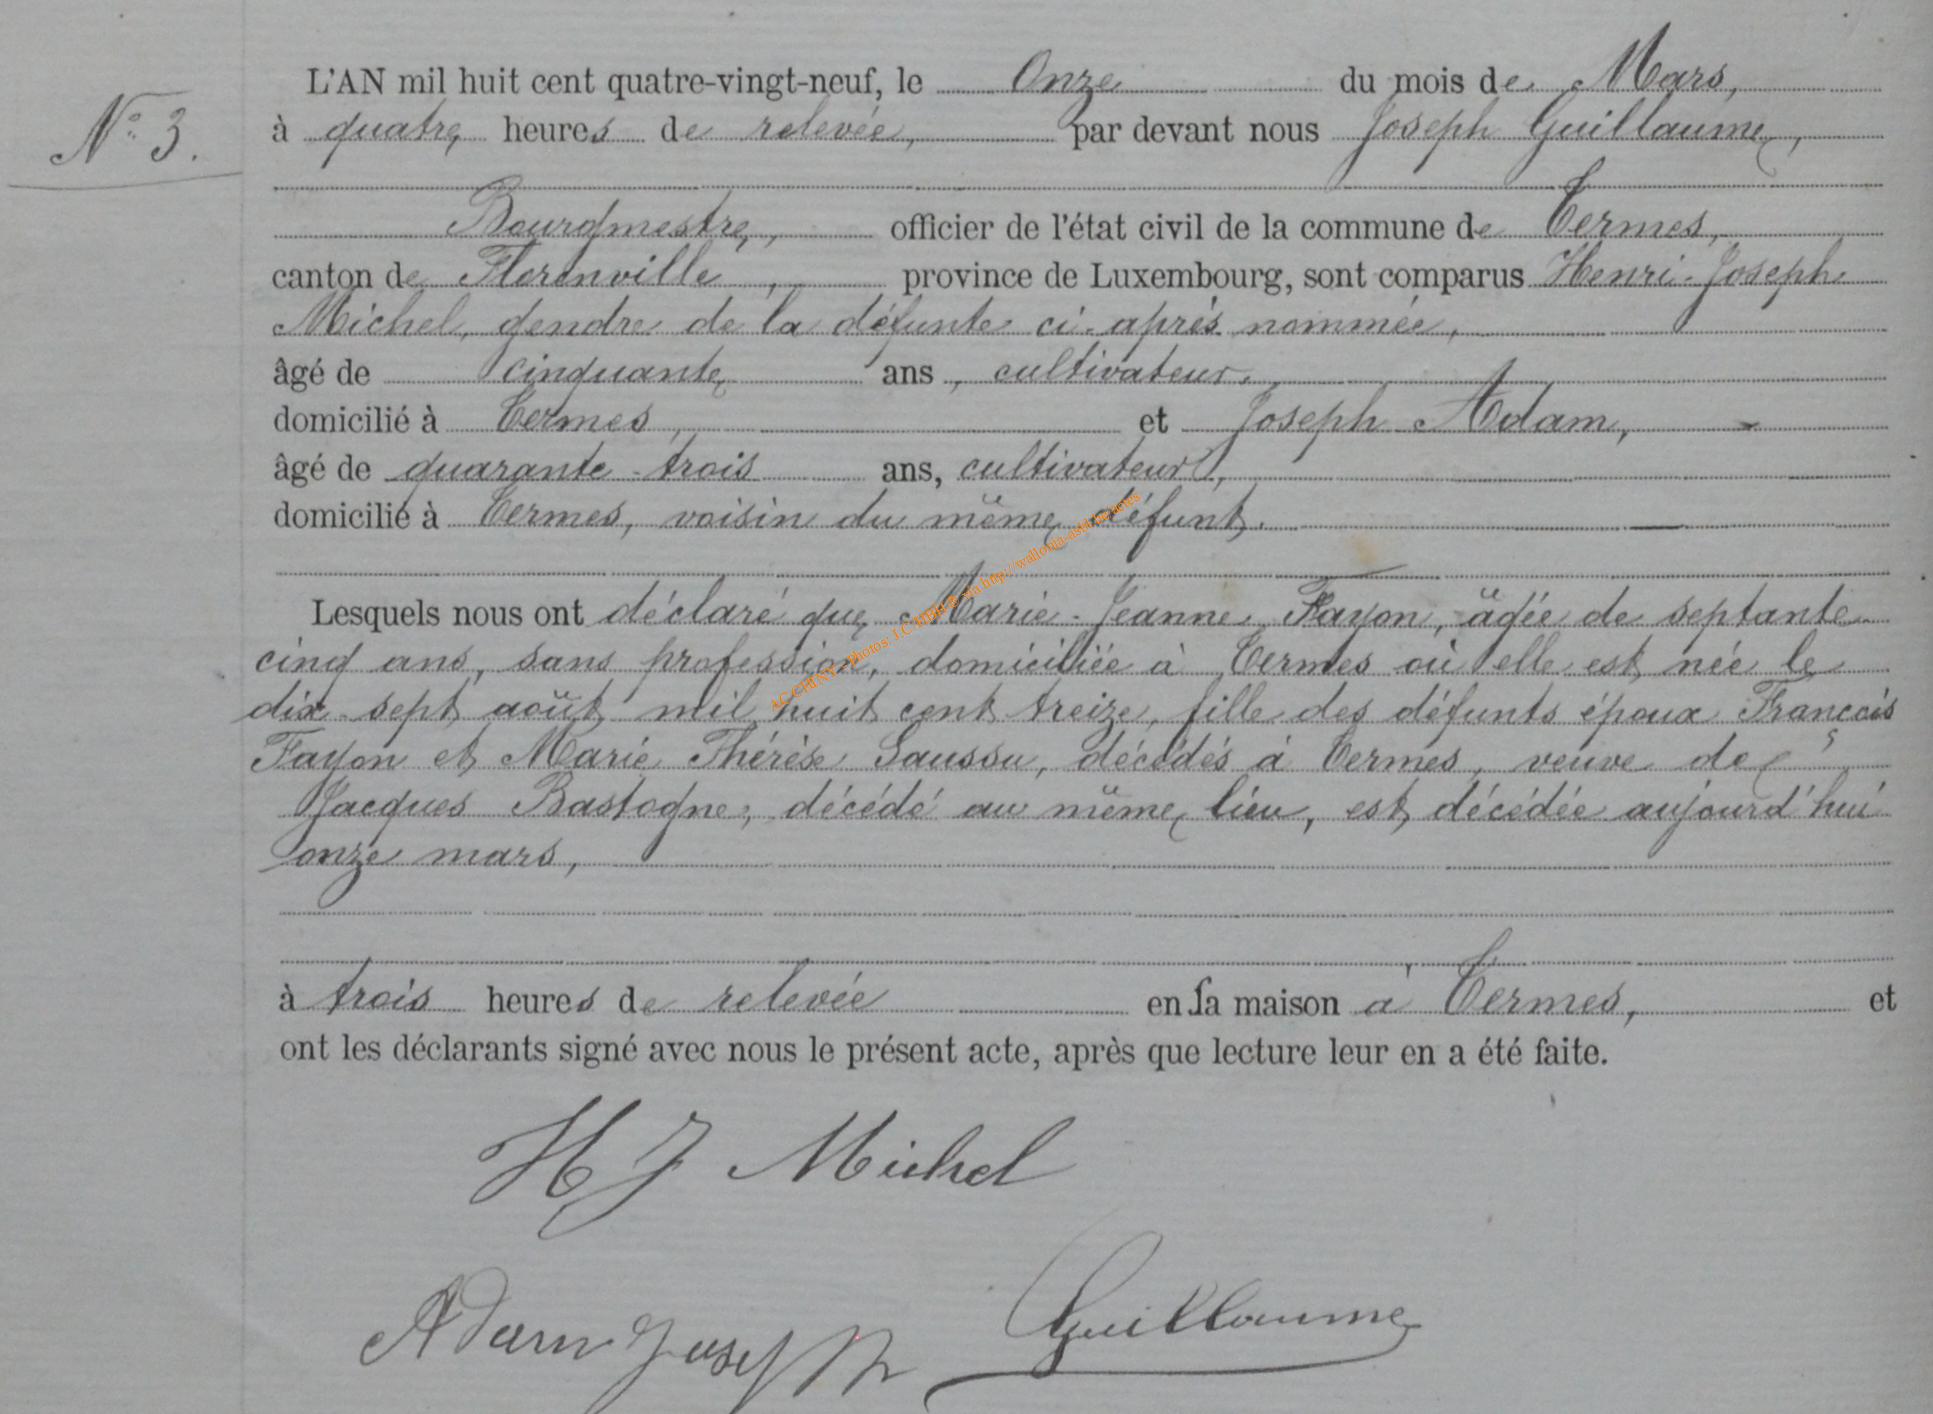 N° 3.
L'AN mil huit cent quatre-vingt-neuf, le Onze du mois de Mars,
à quatre heures de relevée, par devant nous Joseph Guillaume,
Bourgmestre, officier de l'état civil de la commune de Termes,
canton de Florenville, province de Luxembourg, sont comparus Henri-Joseph
Michel, gendre de la défunte ci-après nommée,
âgé de cinquante ans, cultivateur,
domicilié à Termes, et Joseph Adam,
âgé de quarante-trois ans, cultivateur,
domicilié à Termes, voisin du même défunt.
Lesquels nous ont déclaré que Marie-Jeanne Fayon, âgée de septante
cinq ans, sans profession, domiciliée à Termes où elle est née le
dix-sept août mil huit cent treize, fille des défunts époux Francois
Fayon et Marie Thérèse Saussu, décédés à Termes, veuve de
Jacques Bastogne, décédé au même lieu, est décédée aujourd'hui
onze mars,
à trois heures de relevée en sa maison à Termes, et
ont les déclarants signé avec nous le présent acte, après que lecture leur en a été faite.
H J Michel
Adam Joseph Guillaume